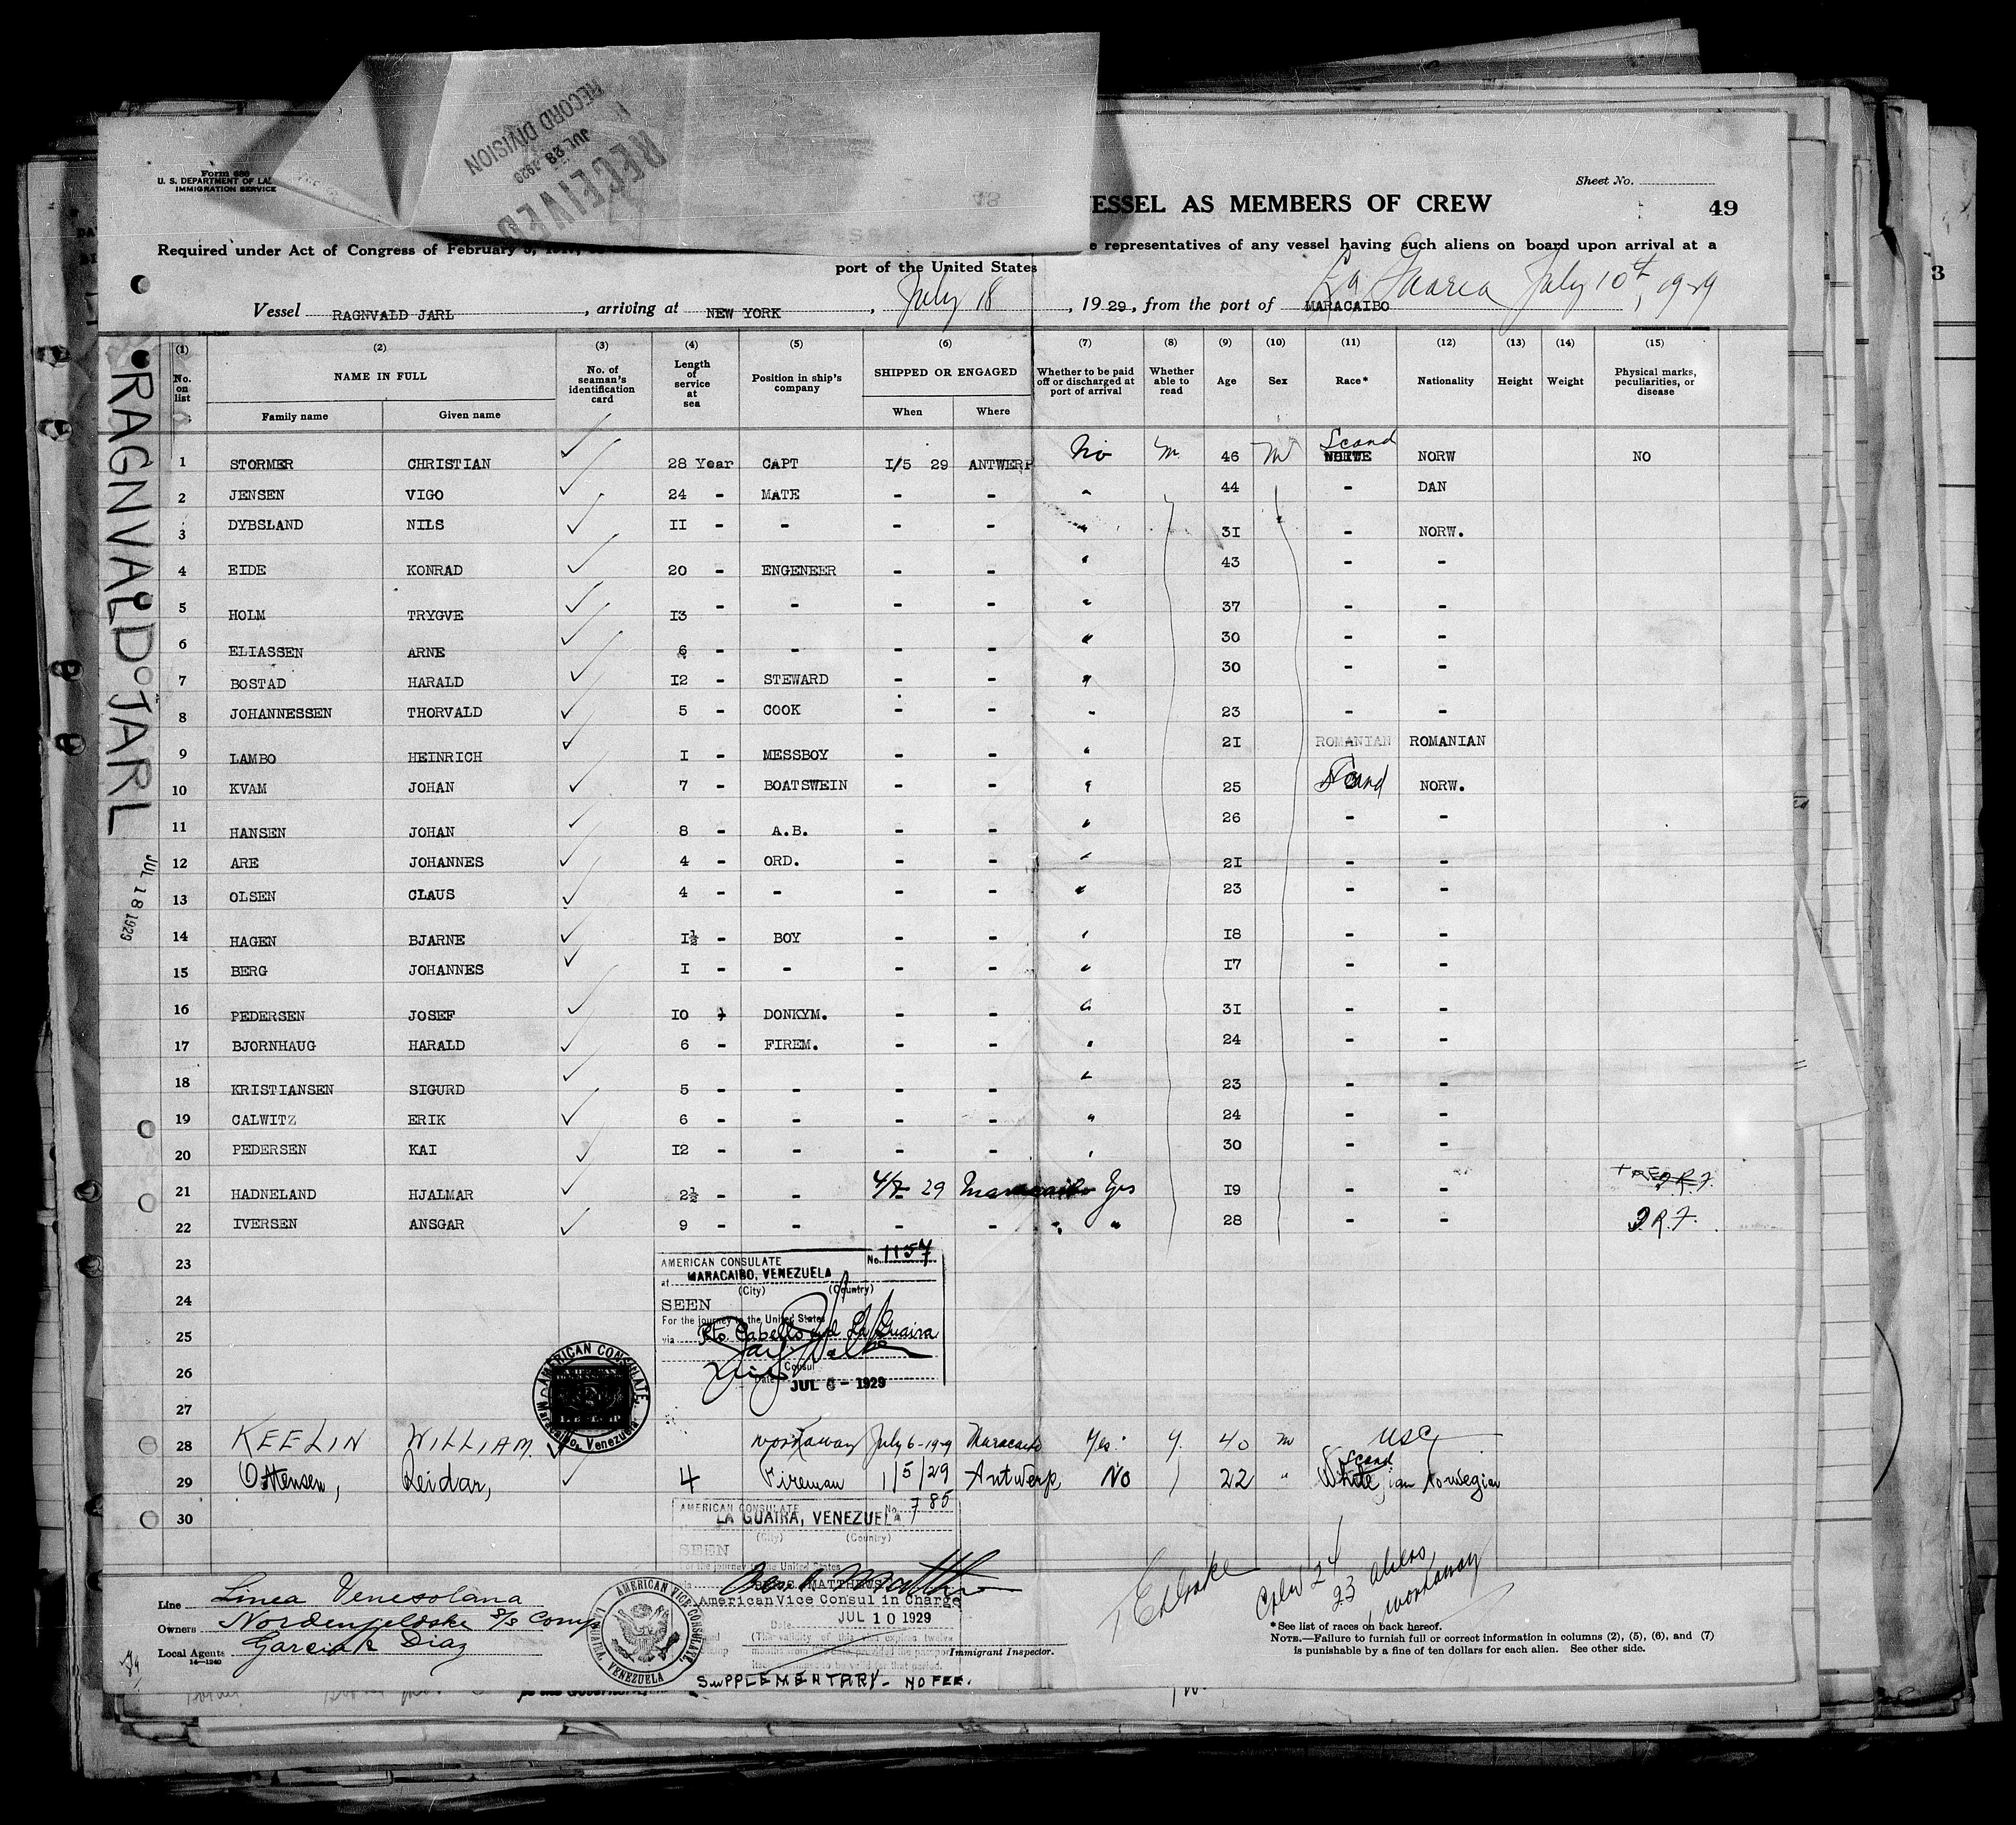 RECEIVED
JUL 23 1929
RECORD DIVISION
Form 680
U. S. DEPARTMENT OF LA
IMMIGRATION SERVICE
Sheet No.
ESSEL AS MEMBERS OF CREW
49
Required under Act of Congress of February 5, 1917,
representatives of any vessel having such aliens on board upon arrival at a
port of the United States
La Guaira July 10th, 1929
Vessel RAGNVALD JARL, arriving at NEW YORK, July 18, 1929, from the port of MARACAIBO
RAGNVALD JARL
JUL 18 1929
(1) (2) (3) (4) (5) (6) (7) (8) (9) (10) (11) (12) (13) (14) (15)
No. on list
NAME IN FULL
Family name Given name
No. of seaman's identification card
Length of service at sea
Position in ship's company
SHIPPED OR ENGAGED
When Where
Whether to be paid off or discharged at port of arrival
Whether able to read
Age Sex Race* Nationality Height Weight
Physical marks, peculiarities, or disease
1 STORMER CHRISTIAN ✓ 28 Year CAPT 1/5 29 ANTWERP No 46 M Scand WHITE NORW NO
2 JENSEN VIGO ✓ 24 - MATE - - " 44 - DAN
3 DYBSLAND NILS ✓ II - - - - " 3I - NORW.
4 EIDE KONRAD ✓ 20 - ENGENEER - - " 43 - -
5 HOLM TRYGVE ✓ I3 - - - - " 37 - -
6 ELIASSEN ARNE ✓ 6 - - - - " 30 - -
7 BOSTAD HARALD ✓ I2 - STEWARD - - " 30 - -
8 JOHANNESSEN THORVALD ✓ 5 - COOK - - " 23 - -
9 LAMBO HEINRICH ✓ I - MESSBOY - - " 2I ROMANIAN ROMANIAN
10 KVAM JOHAN ✓ 7 - BOATSWEIN - - " 25 Scand NORW.
11 HANSEN JOHAN ✓ 8 - A.B. - - " 26 - -
12 ARE JOHANNES ✓ 4 - ORD. - - " 2I - -
13 OLSEN CLAUS ✓ 4 - - - - " 23 - -
14 HAGEN BJARNE ✓ I½ - BOY - - " I8 - -
15 BERG JOHANNES ✓ I - - - - " I7 - -
16 PEDERSEN JOSEF ✓ IO - DONKYM. - - " 3I - -
17 BJORNHAUG HARALD ✓ 6 - FIREM. - - " 24 - -
18 KRISTIANSEN SIGURD ✓ 5 - - - - " 23 - -
19 CALWITZ ERIK ✓ 6 - - - - " 24 - -
20 PEDERSEN KAI ✓ I2 - - - - " 30 - -
21 HADNELAND HJALMAR ✓ 2½ - - 4/7 29 Maracaibo Yes I9 - -
22 IVERSEN ANSGAR ✓ 9 - - - - " " 28 - - D.R.F.
23
24
25
26
27
AMERICAN CONSULATE No. 1157
at MARACAIBO, VENEZUELA
(City) (Country)
SEEN
For the journey to the United States
via Pto Cabello and La Guaira
Consul
Date JUL 6 - 1929
AMERICAN CONSULATE
Maracaibo, Venezuela
28 KEELIN WILLIAM ✓ workaway July 6-1929 Maracaibo Yes. Y. 40 m USC
29 Ottensen, Reidar, ✓ 4 Fireman 1/5/29 Antwerp, No 22 " Scand White Norwegian
30
AMERICAN CONSULATE No. 785
LA GUAIRA, VENEZUELA
(City) (Country)
SEEN
For the journey to the United States
BEN C. MATTHEWS
American Vice Consul in Charge
Date JUL 10 1929
AMERICAN VICE CONSULATE
LA GUAIRA, VENEZUELA
SUPPLEMENTARY - NO FEE.
Line Linea Venesolana
Owners Nordenfjeldske S/S Comp
Local Agents Garcia & Diaz
14—1240
Immigrant Inspector.
Crew 24
23 aliens
1 workaway
*See list of races on back hereof.
NOTE.—Failure to furnish full or correct information in columns (2), (5), (6), and (7)
is punishable by a fine of ten dollars for each alien. See other side.